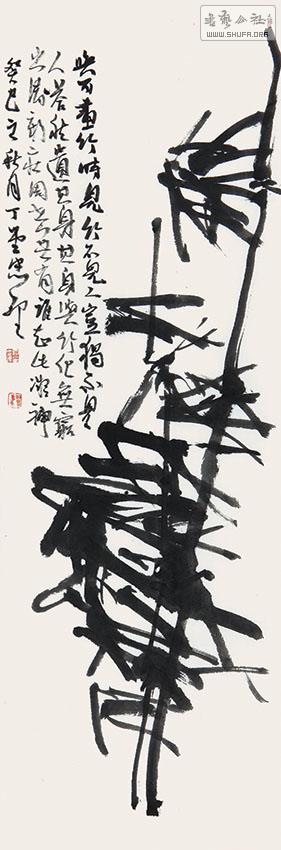 書藝公社
WWW.SHUFA.ORG
與可畫竹時見竹不見人豈獨不見
人嗒然遺其身其身與竹化無窮
出清新莊周世無有誰知此凝神
癸巳之秋月丁